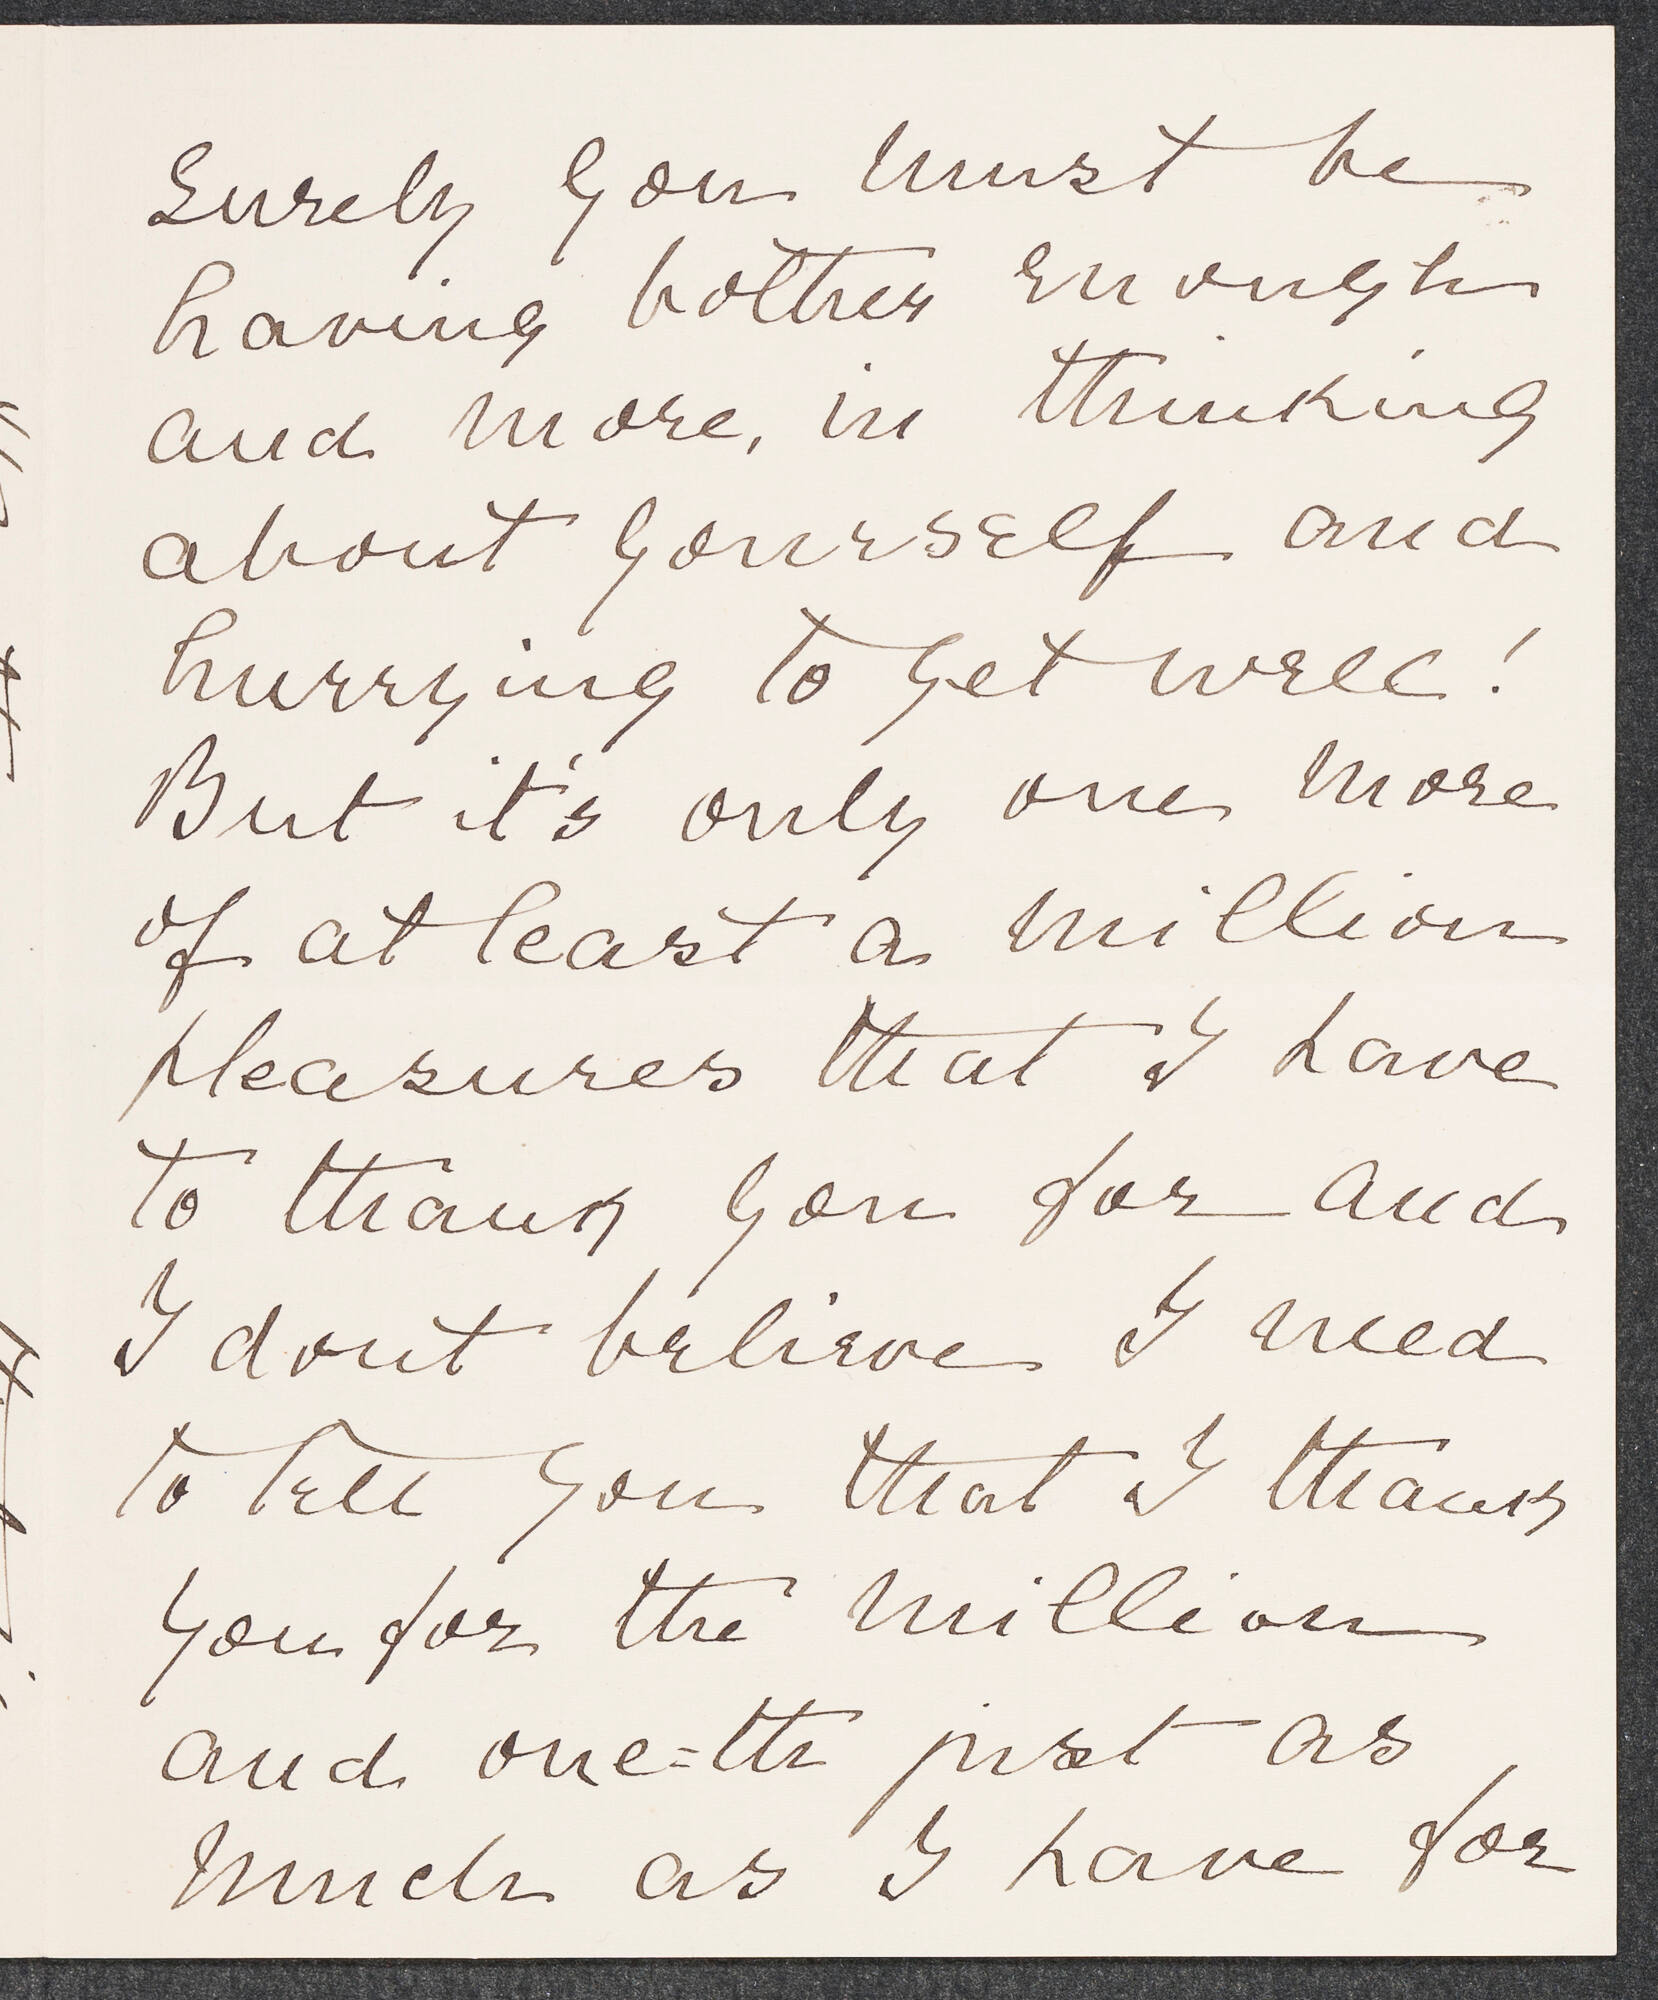 Surely you must be
having bother enough
and more, in thinking
about yourself and
hurrying to get well!
But it's only one more
of at least a million
pleasures that I have
to thank you for and
I dont believe I need
to tell you that I thank
you for the million
and one=th just as
much as I have for